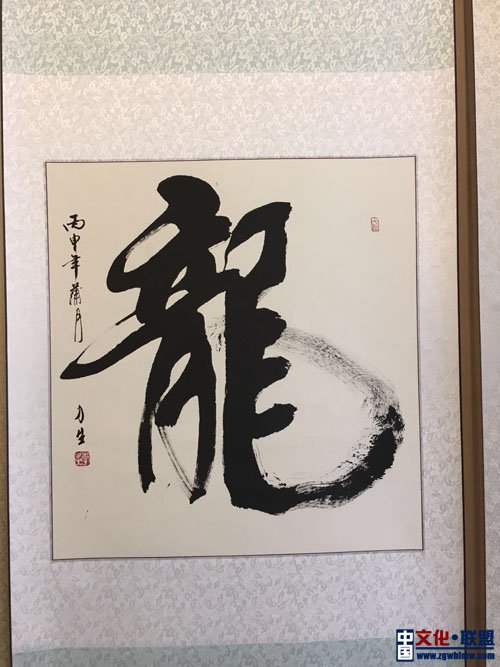 龍
丙申年蒲月
力生
中国文化·联盟
www.zgwhlmw.com